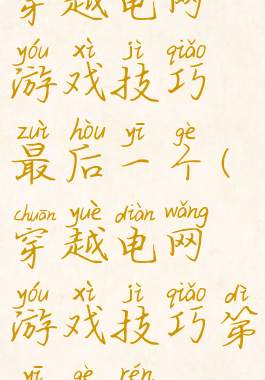 穿越电网
yóu xì jì qiǎo
游戏技巧
zuì hòu yī gè
最后一个(
chuān yuè diàn wǎng
穿越电网
yóu xì jì qiǎo dì
游戏技巧第
yī gè rén